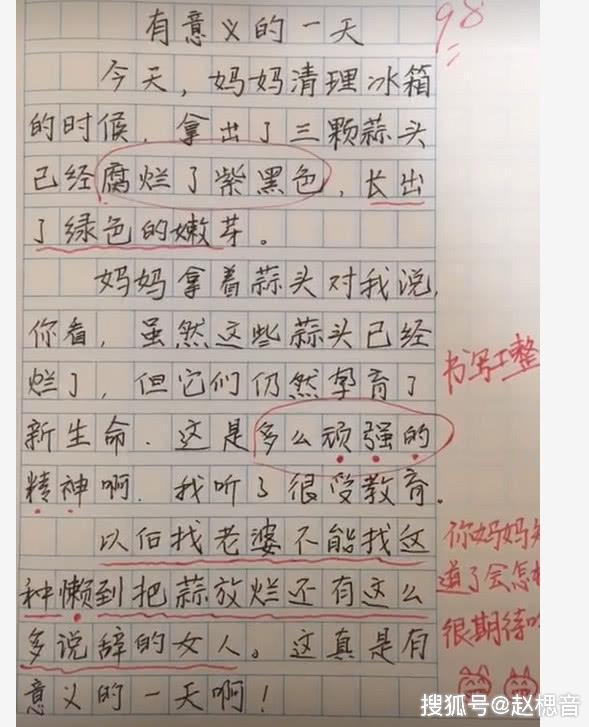 有意义的一天
98
今天，妈妈清理冰箱
的时候，拿出了三颗蒜头
已经腐烂了紫黑色，长出
了绿色的嫩芽。
妈妈拿着蒜头对我说，
你看，虽然这些蒜头已经
烂了，但它们仍然孕育了
新生命．这是多么顽强的
精神啊．我听了很受教育。
以后找老婆不能找这
种懒到把蒜放烂还有这么
多说辞的女人。这真是有
意义的一天啊！
书写工整
你妈妈知
道了会怎
很期待
搜狐号@赵楒音